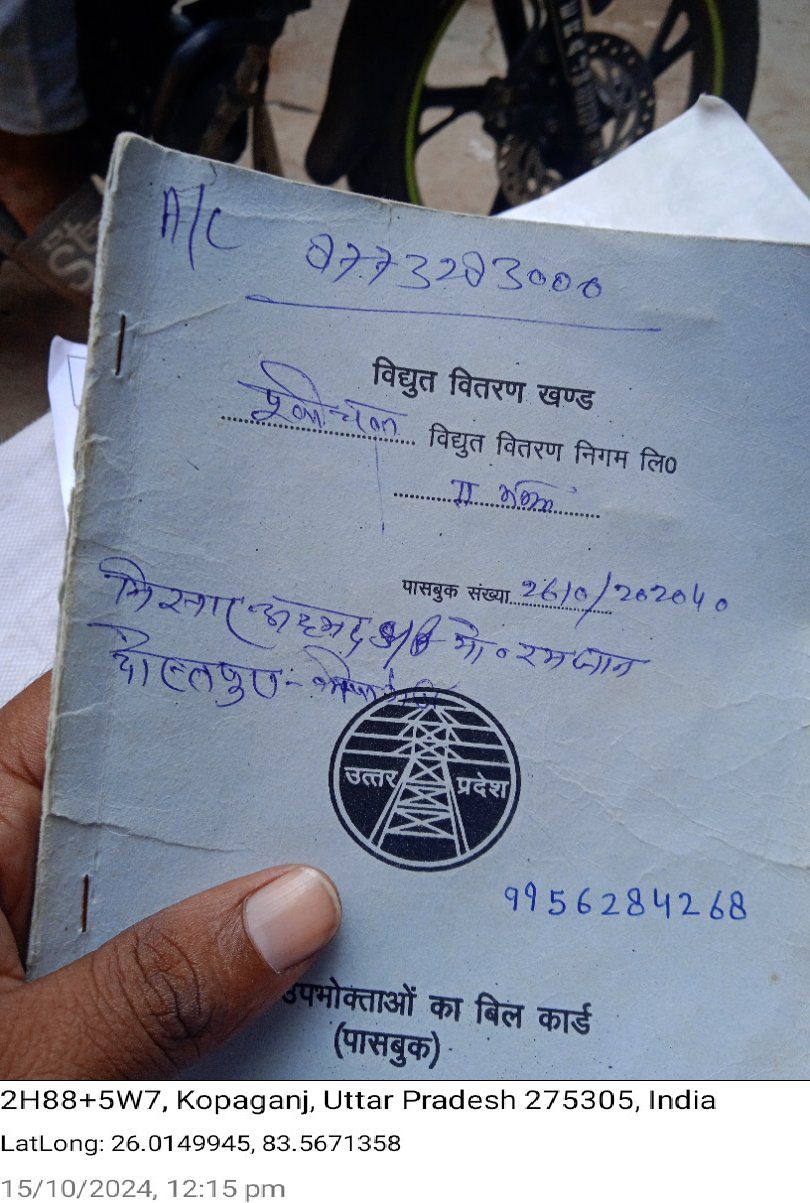 A/C 0773283000
विद्युत वितरण खण्ड
पूर्वांचल विद्युत वितरण निगम लि०
पासबुक संख्या 2610/202040
अहमद S/O मो० रमजान
दौलतपुर -
उत्तर प्रदेश
9956284268
उपभोक्ताओं का बिल कार्ड
(पासबुक)
2H88+5W7, Kopaganj, Uttar Pradesh 275305, India
LatLong: 26.0149945, 83.5671358
15/10/2024, 12:15 pm